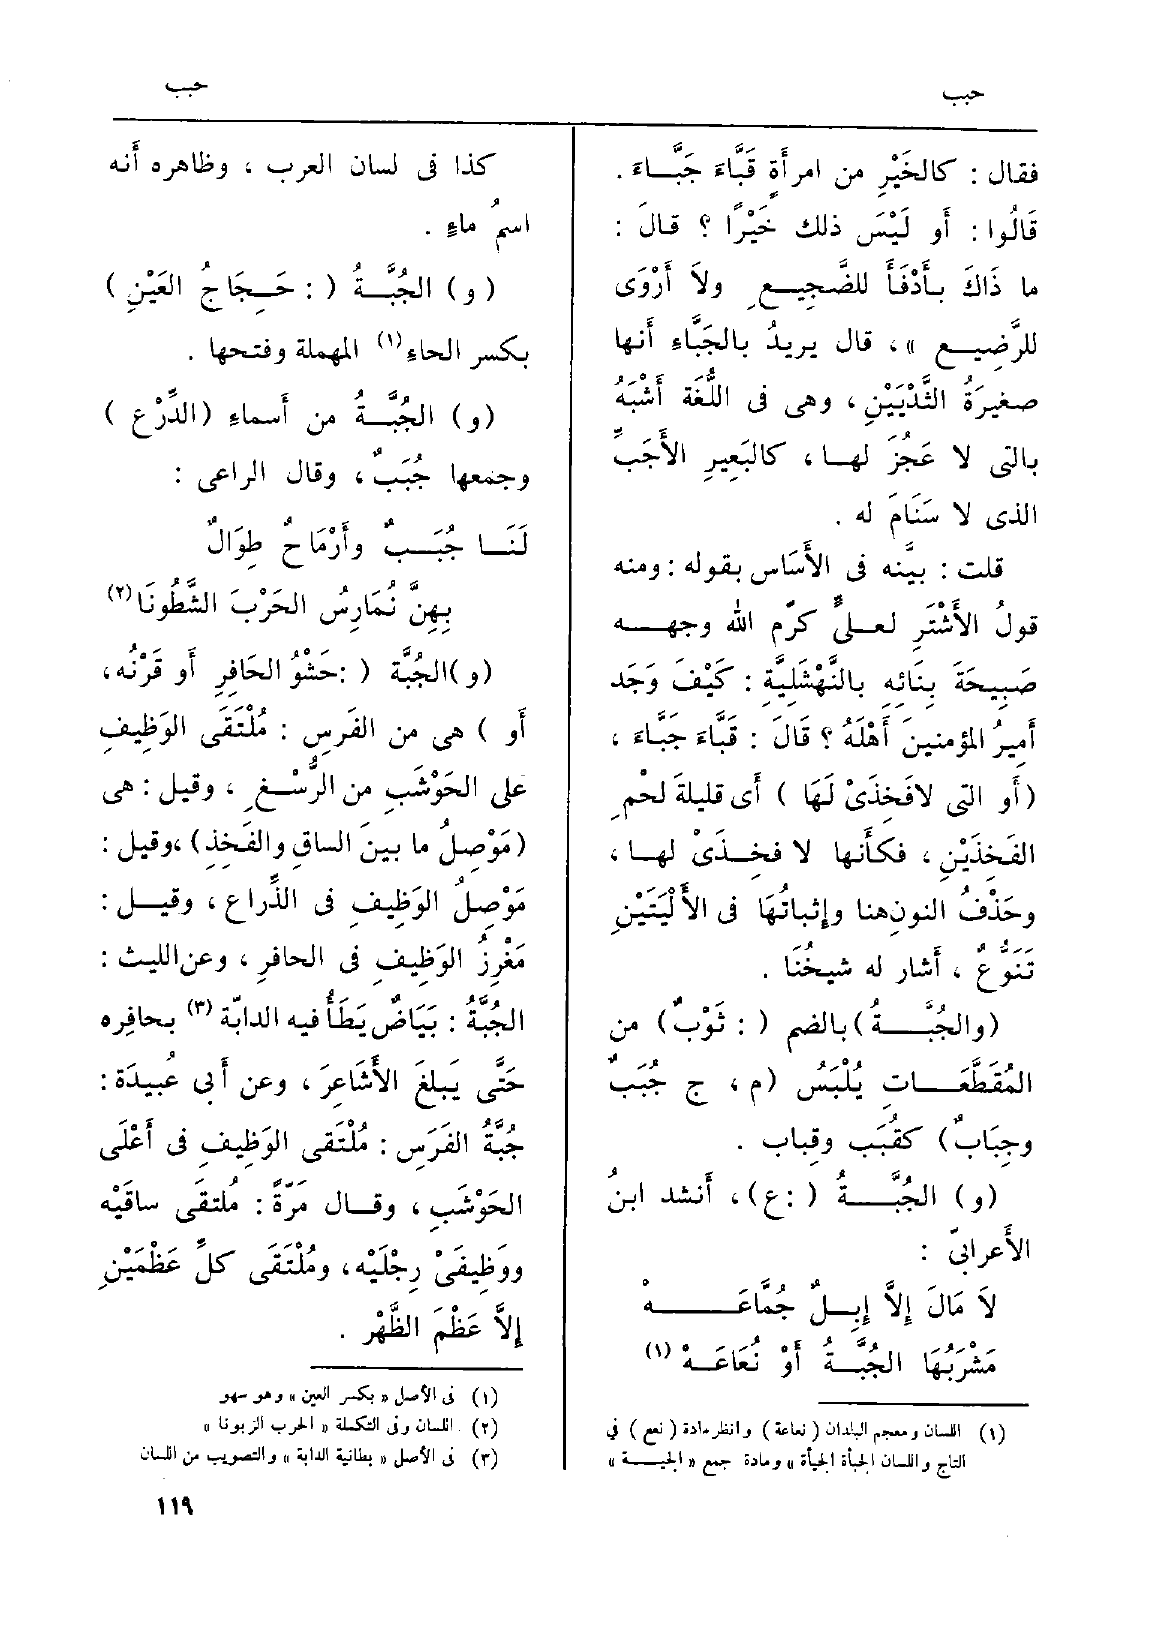 جبب
جبب
فقال : كالخَيْرِ من امرأةٍ قَبَّاءَ جَبَّاءَ .
قَالُوا : أَو لَيْسَ ذلك خَيْرًا ؟ قالَ :
ما ذَاكَ بأَدْفَأَ للضَّجِيعِ ولاَ أَرْوَى
للرَّضِيعِ » ، قال يريدُ بالجَبَّاءِ أَنها
صغيرَةُ الثَّدْيَيْنِ ، وهى فى اللُّغَة أَشْبَهُ
بالتى لا عَجُزَ لها ، كالبَعِيرِ الأَجَبِّ
الذى لا سَنَامَ له .
قلت : بيَّنه فى الأَسَاس بقوله : ومنه
قولُ الأَشْتَرِ لعلىٍّ كرّم الله وجهه
صَبِيحَةَ بِنَائِه بالنَّهْشَلِيَّةِ : كَيْفَ وَجَد
أَمِيرُ المؤمنِينَ أَهْلَهُ ؟ قَالَ : قَبَّاءَ جَبَّاءَ ،
(أَو التى لافَخِذَىْ لَهَا ) أَى قليلةَ لحْمِ
الفَخِذَيْنِ ، فكأَنها لا فخِذَىْ لها ،
وحَذْفُ النونِ هنا وإثباتُهَا فى الأَلْيَتَيْنِ
تَنَوُّعٌ ، أشار له شيخُنَا .
(والجُبَّةُ) بالضم ( : ثَوْبٌ) من
المُقَطَّعَات يُلْبَسُ (م ، ج جُبَبٌ
وجِبَابٌ) كقُبَب وقِباب .
(و) الجُبَّةُ ( :ع) ، أَنشد ابنُ
الأَعرابىّ :
لاَ مَالَ إِلاَّ إِبِلٌ جُمَّاعَهْ
مَشْرَبُهَا الجُبَّةُ أَوْ نُعَاعَهْ (١)
(١) اللسان ومعجم البلدان ( نعاعة ) وانظر مادة ( نعع ) في
التاج واللسان الجبأة الجيأة » ومادة جمع « الجيـة »
كذا فى لسان العرب ، وظاهره أَنه
اسمُ ماءٍ .
( و) الجُبَّةُ ( : حَِجَاجُ العَيْنِ )
بكسر الحاءِ (١) المهملة وفتحها .
(و) الجُبَّةُ من أَسماءِ (الدِّرْع )
وجمعها جُبَبٌ ، وقال الراعى :
لَنَا جُبَبٌ وأَرْمَاحٌ طِوَالٌ
بِهِنَّ نُمَارِسُ الحَرْبَ الشَّطُونَا (٢)
(و)الجُبَّة ( :حَشْوُ الحَافِرِ أَو قَرْنُه ،
أَو ) هى من الفَرَسِ : مُلْتَقَى الوَظِيفِ
على الحَوْشَبِ من الرُّسْغِ ، وقيل : هى
(مَوْصِلُ ما بينَ الساقِ والفَخِذِ) ، وقيل :
مَوْصِلُ الوَظِيفِ فى الذِّراعِ ، وقيل :
مَغْرِزُ الوَظِيفِ فى الحافِرِ ، وعن الليث :
الجُبَّةُ : بَيَاضٌ يَطَأُ فيه الدابّة (٣) بحافِره
حَتَّى يَبلغَ الأَشَاعِرَ ، وعن أَبى عُبيدَة :
جُبَّةُ الفَرَسِ : مُلْتَقَى الوَظِيفِ فى أَعْلَى
الحَوْشَبِ ، وقال مَرَّةً : مُلتقَى ساقَيْه
ووَظِيفَىْ رِجْلَيْه ، ومُلْتَقَى كلِّ عَظْمَيْنِ
إِلاَّ عَظْمَ الظَّهْرِ .
(١) فى الأصل « بكسر العين » وهو سهو
(٢) اللسان وفى التكملة « الحرب الزبونا »
(٣) فى الأصل « بطانية الدابة » والتصويب من اللسان
١١٩